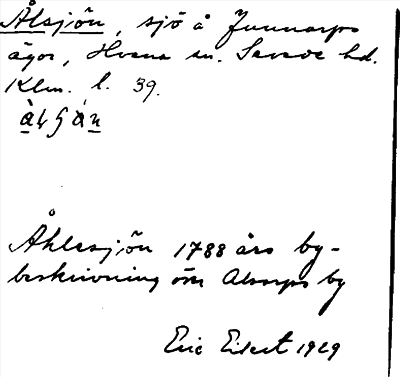 Ålsjön, sjö å Junnarps
ägor, Hvena sn. Sevede hd.
Klm. l. 39.
Åhlesjön 1788 års by-
beskrivning öfver Alsarps by
Eric Elsert 1929